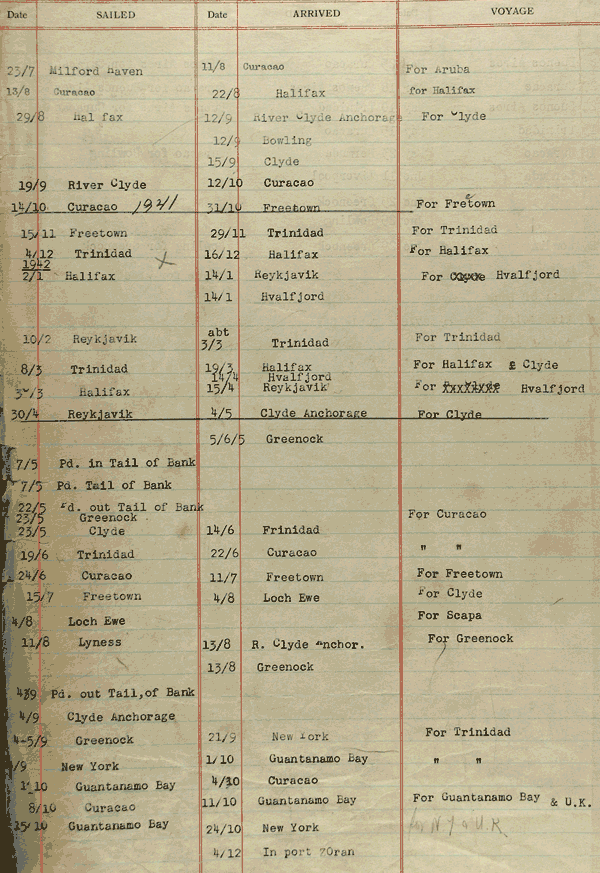 Date SAILED Date ARRIVED VOYAGE
23/7 Milford Haven 11/8 Curacao For Aruba
13/8 Curacao 22/8 Halifax for Halifax
29/8 Hal fax 12/9 River Clyde Anchorage For Clyde
12/9 Bowling
15/9 Clyde
19/9 River Clyde 12/10 Curacao
14/10 Curacao 1941 31/10 Freetown For Fretown
e
15/11 Freetown 29/11 Trinidad For Trinidad
4/12 Trinidad 16/12 Halifax For Halifax
1942
2/1 Halifax 14/1 Reykjavik For Hvalfjord
14/1 Hvalfjord
10/2 Reykjavik abt 3/3 Trinidad For Trinidad
8/3 Trinidad 19/3 Halifax For Halifax & Clyde
14/4 Hvalfjord
/3 Halifax 15/4 Reykjavik For Hvalfjord
30/4 Reykjavik 4/5 Clyde Anchorage For Clyde
5/6/5 Greenock
7/5 Pd. in Tail of Bank
7/5 Pd. Tail of Bank
22/5 Pd. out Tail of Bank
23/5 Greenock For Curacao
23/5 Clyde 14/6 Frinidad
19/6 Trinidad 22/6 Curacao " "
24/6 Curacao 11/7 Freetown For Freetown
15/7 Freetown 4/8 Loch Ewe For Clyde
4/8 Loch Ewe For Scapa
11/8 Lyness 13/8 R. Clyde Anchor. For Greenock
13/8 Greenock
4/9 Pd. out Tail,of Bank
4/9 Clyde Anchorage
4-5/9 Greenock 21/9 New York For Trinidad
/9 New York 1/10 Guantanamo Bay " "
1 10 Guantanamo Bay 4/10 Curacao
8/10 Curacao 11/10 Guantanamo Bay For Guantanamo Bay & U.K.
15/10 Guantanamo Bay 24/10 New York for N Y & U.K
4/12 In port ?Oran